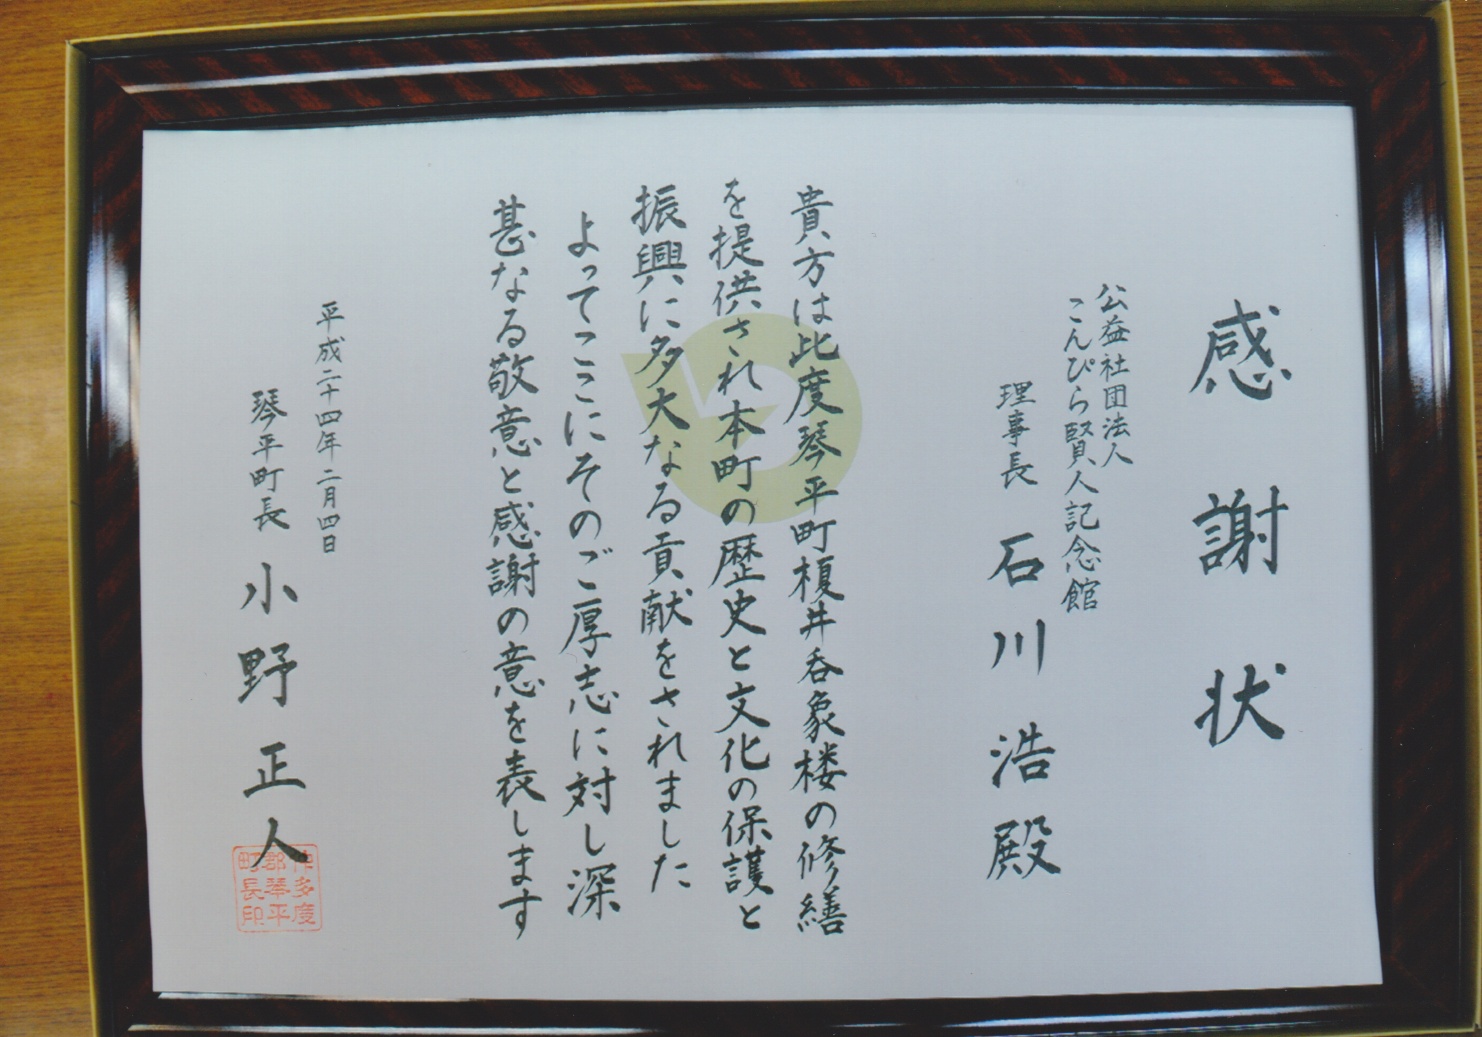 感謝状
公益社団法人
こんぴら賢人記念館
理事長 石川浩殿
貴方は此度琴平町榎井呑象楼の修繕
を提供され本町の歴史と文化の保護と
振興に多大なる貢献をされました
よってここにそのご厚志に対し深
甚なる敬意と感謝の意を表します
平成二十四年二月四日
琴平町長 小野正人
仲多度
郡琴平
町長印